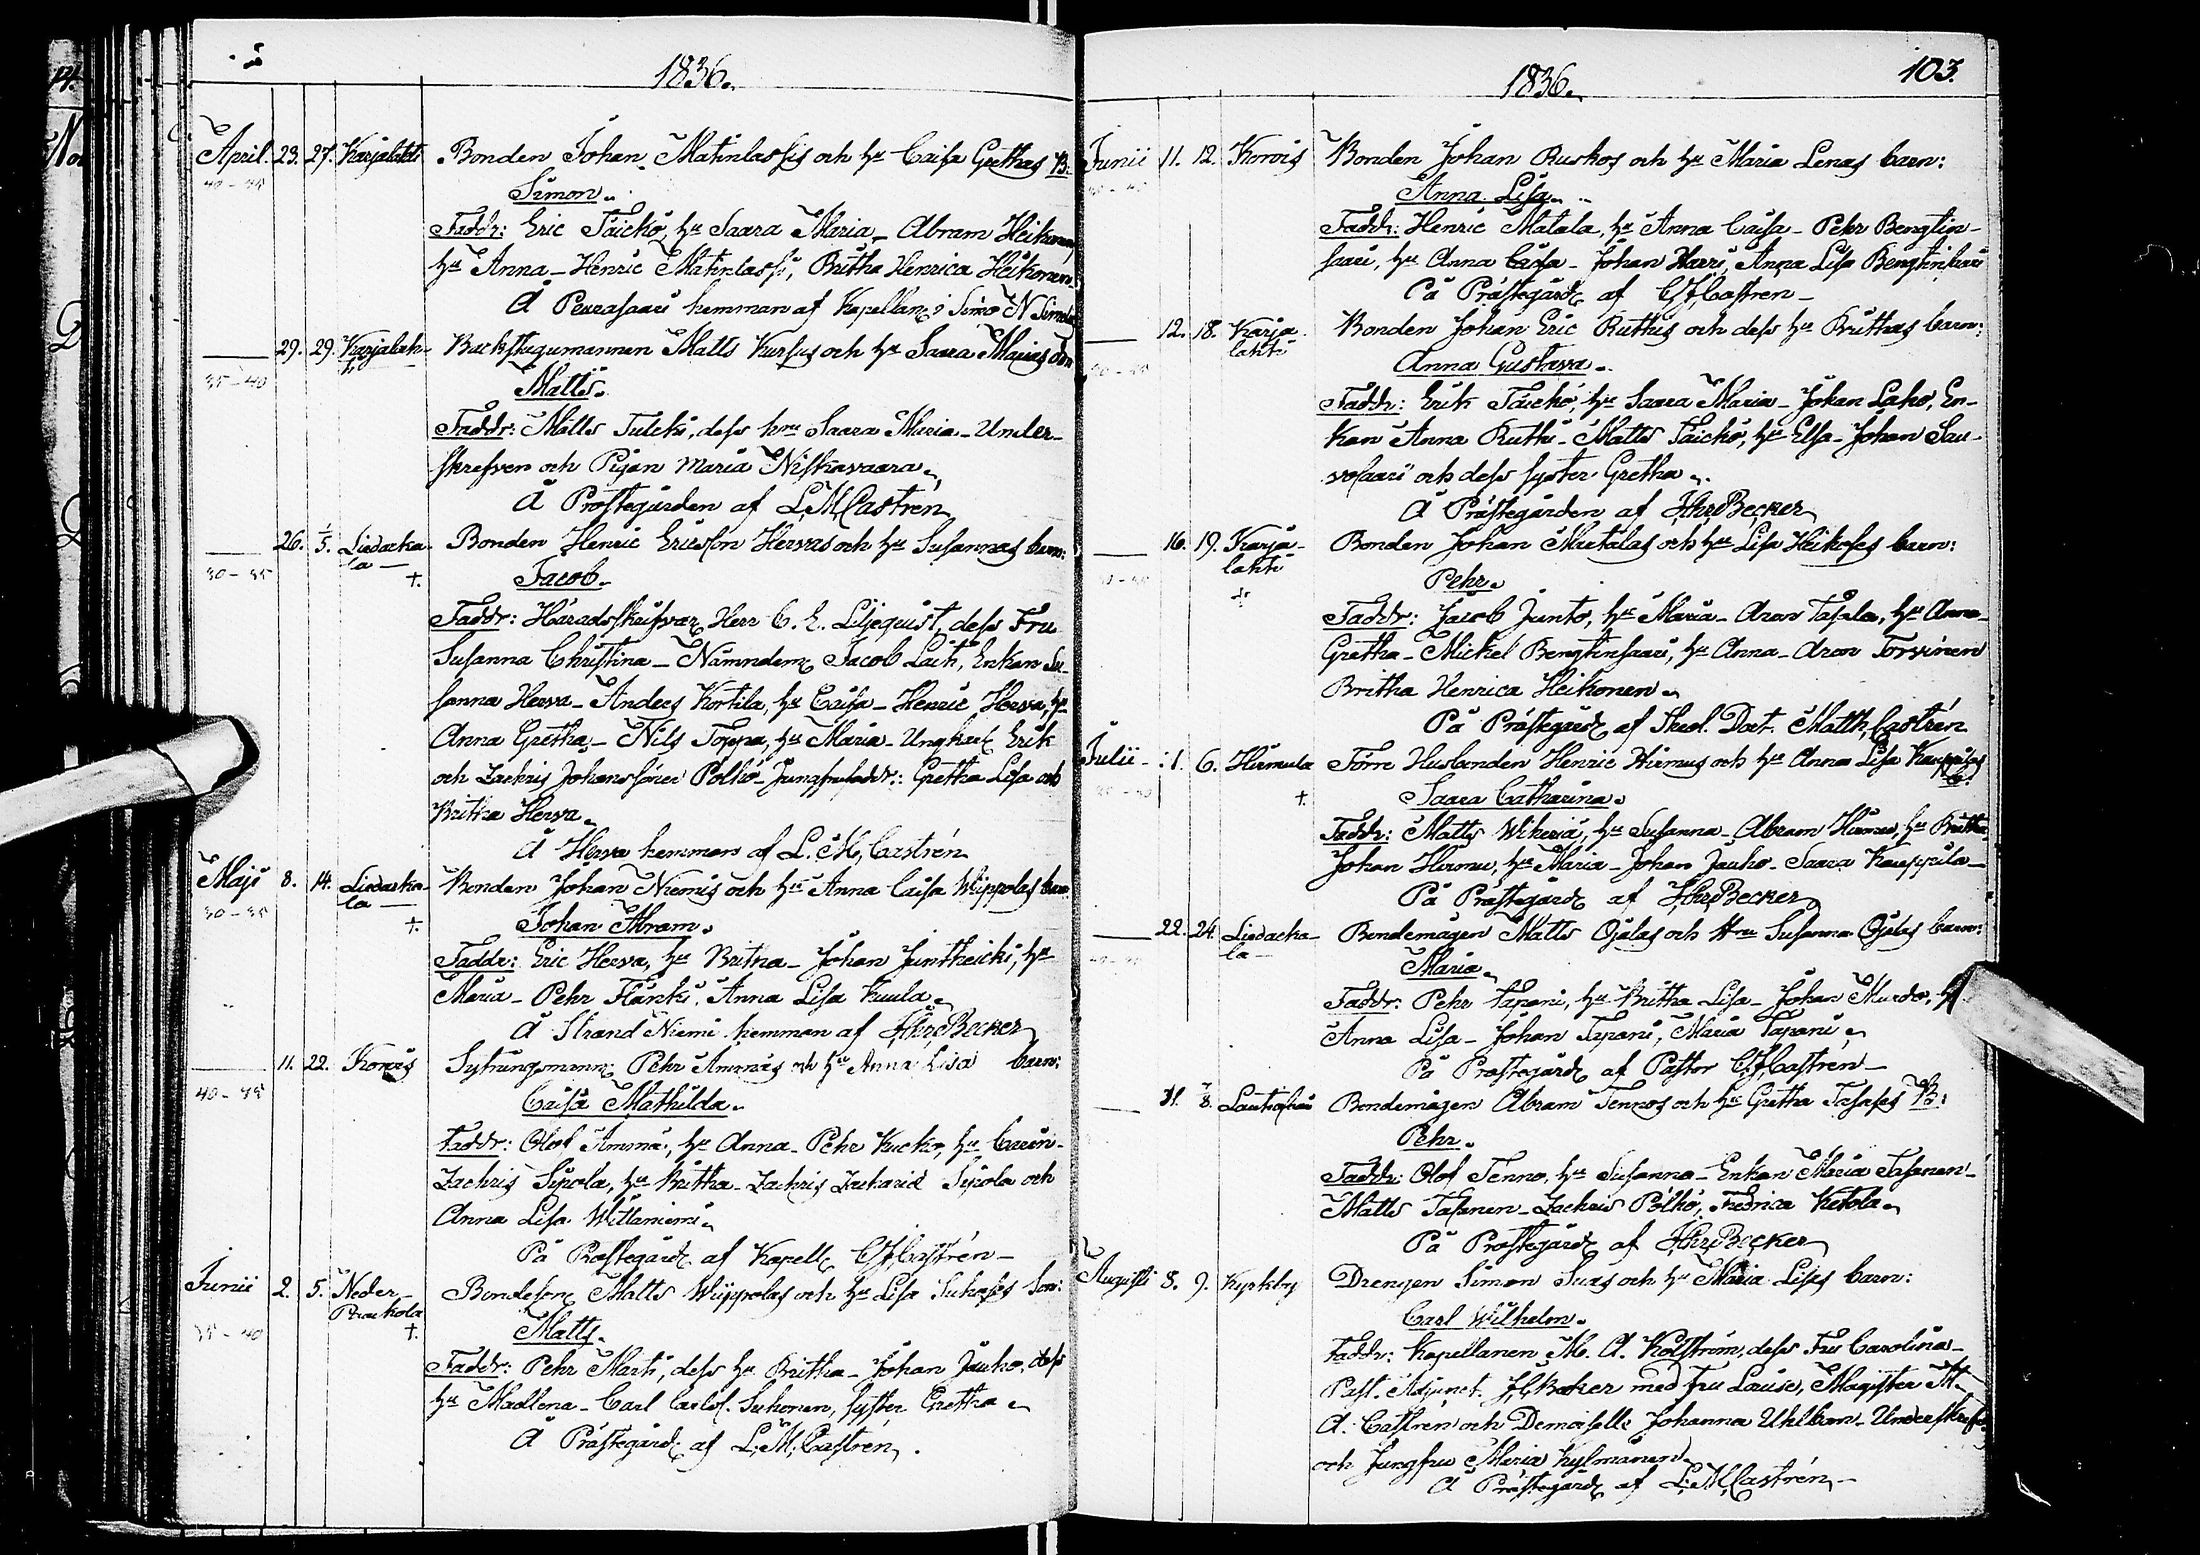 1836.
April. 23. 27. Karjalahti Bonden Johan Matinlassis och hu Caisa Grethas B:
40-45 Simon.
Faddr: Eric Täickö, hu Saara Maria - Abram Heikonen
hu Anna - Henric Matinlassi, Britha Henrica Heikonen
Å Peurasaari hemman af Kapellan i Simo N Simelius
29. 29. Karjalah- Backstugumannen Matts Kursus och hu Saara Marias son
35-40 ti Matts.
Faddr: Matts Tulcki, dess hru Saara Maria - Under-
skrefven och Pigan Maria Niskavaara
Å Prostegården af L.M. Castrén
26. 1/5. Liedacka- Bonden Henric Ericsson Hervas och hu Susannas barn:
30-35 la + Jacob.
Faddr: Häradsskrifvar Herr C. E. Liljequist, dess Fru
Susanna Christina - Nämndem Jacob Laiti, Enkan Su-
sanna Herva - Anders Kortila, hu Caisa - Henric Herva, hu
Anna Gretha - Nils Toppa, hu Maria - Ungkarl Erik
och Zachris Johanssöner Pölhö - Jungfrufaddr: Gretha Lisa och
Britha Herva
Å Herva hemman af L. M. Castrén
Maji 8. 14. Liedacka- Bonden Johan Niemis och hu Anna Caisa Wippolas barn
30-35 la + Johan Abram.
Faddr: Eric Herva, hu Britha - Johan Juntheicki, hu
Maria - Pehr Flänki, Anna Lisa Kuula
Å Strand Niemi hemman af JHrBecker
11. 22. Korvis Sytningsmann Pehr Ämmäs och hu Anna Lisa barn:
40-45 Caisa Mathilda.
Faddr: Olof Ämmä, hu Anna - Pehr Kucko, hu Carin -
Zachris Sipola, hu Britha - Zachris Zachariæ Sipola och
Anna Lisa Wittaniemi
På Prostegård af Kapell CJCastrén -
Junii 2. 5. Neder- Bondeson Matts Wippolas och hu Lisa Suhoses Son:
35-40 Paackola + Matts.
Faddr: Pehr Marti, dess hu Britha - Johan Jauho, dess
hu Madlena - Carl Carlss. Suhonen, syster Gretha
Å Prästegård af L.M. Castrén.
1836. 103.
Junii 11. 12. Korvis Bonden Johan Ruskos och hu Maria Lenas barn:
Anna Lisa.
Faddr: Henric Matala, hu Anna Caisa - Pehr Bengtin-
saari, hu Anna Caisa - Johan Harri, Anna Lisa Bengtinsaari
På Prästegård af CJCastrén -
12. 18. Karja- Bonden Johan Eric Ruthis och dess hu Brithas barn:
lahti Anna Gustava.
Faddr: Erik Täickö, hu Saara Maria - Johan Laho, En-
kan Anna Ruthi - Matts Täickö, hu Elsa - Johan Sau-
vosaari och dess syster Gretha
Å Prästegården af JHrBecker
16. 19. Karja- Bonden Johan Mutalas och hu Lisa Heikoses barn:
lahti + Pehr.
Faddr: Jacob Junto, hu Maria - Aron Tasala, hu Anna
Gretha - Mickel Bengtinsaari, hu Anna - Aron Torvinen
Britha Henrica Heikonen
På Prästegård af Theol. Doct. Matth. Castrén
Julii 1. 6. Hirmula Förre Husbonden Henric Hirmus och hu Anna Lisa Kauppilas
+ Saara Catharina. B:
Faddr: Matts Wikeriä, hu Susanna - Abram Hirmu, hu Britha
Johan Hirmu, hu Maria - Johan Jauho - Saara Kauppila -
På Prästegård af JHrBecker
22. 24. Liedacka- Bondemågen Matts Ojalas och Hru Susanna Ojalas barn:
la Maria.
Faddr: Pehr Tapani, hu Britha Lisa - Johan Murdo, hu
Anna Lisa - Johan Tapani, Maria Tapani
På Prostegård af Pastor CJCastrén -
31. 7/8. Lautiosaari Bondemågen Abram Tennos och hu Gretha Tasases B:
Pehr.
Faddr: Olof Tenno, hu Susanna - Enkan Maria Tasanen -
Matts Tasanen - Zachris Pölhö, Fredrica Ketola
På Prostegård af JHrBecker
Augusti 8. 9. Kyrkby Drengen Simon Suas och hu Maria Lises barn:
Carl Wilhelm.
Faddr: Kapellanen M. A. Kolström, dess Fru Carolina -
Past. Adjunct. JHBecker med Fru Louise, Magister M.
A. Castrén och Demoiselle Johanna Uhlbom - Underskrefne
och Jungfru Maria Kylmänen
Å Prästegård af L.M. Castrén -